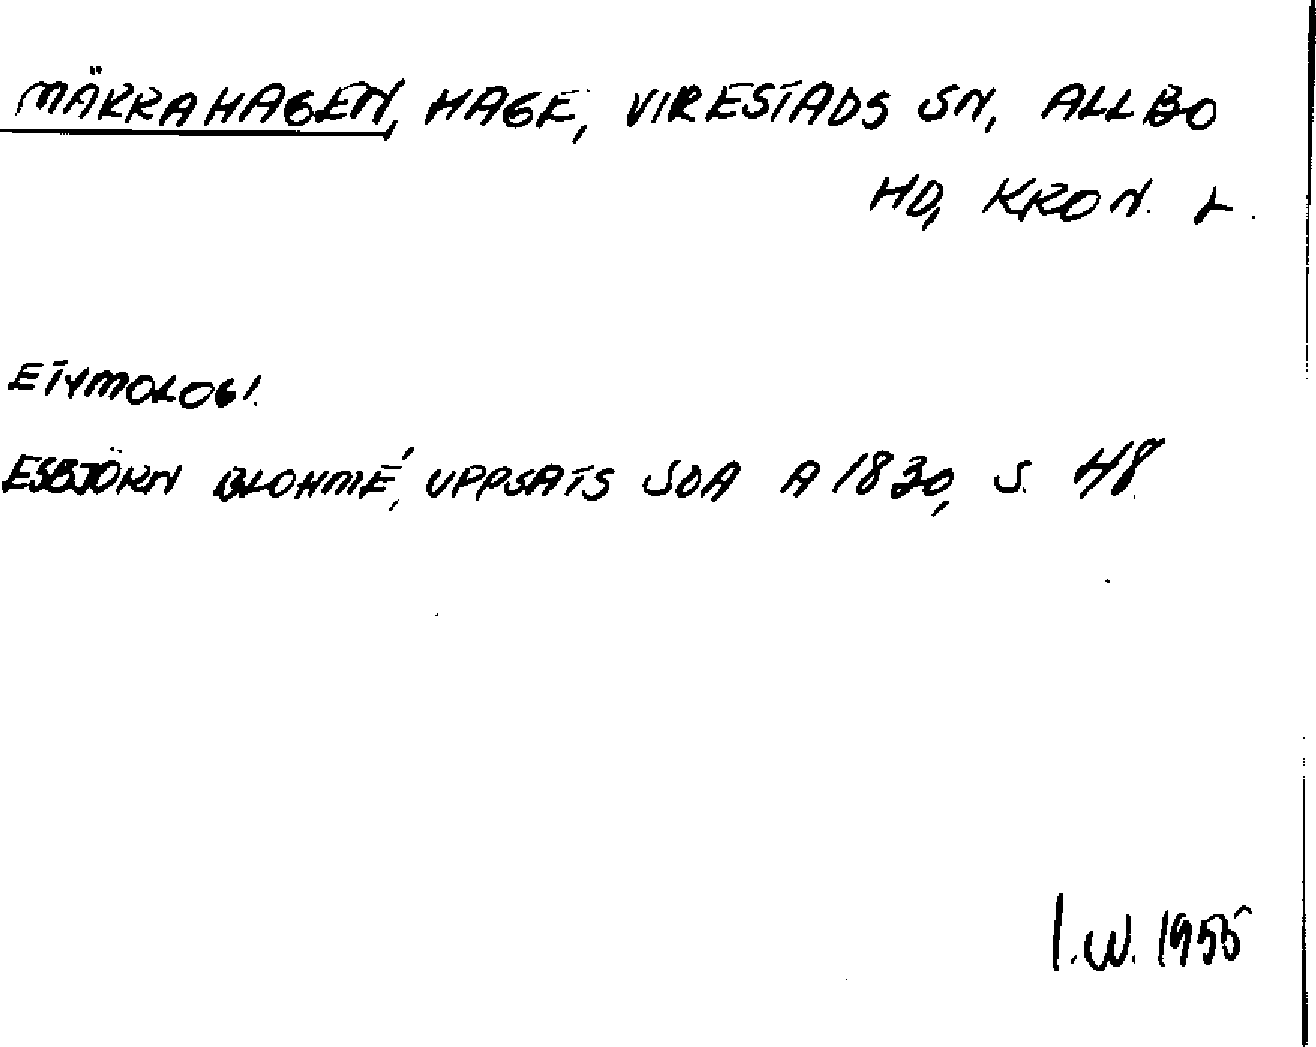 MÄRRAHAGEN, HAGE, VIRESTADS SN, ALLBO
HD, KRON. L.
ETYMOLOGI.
ESBJÖRN BLOHMÉ, UPPSATS SOA A 1830, S. 48.
I.W. 1955